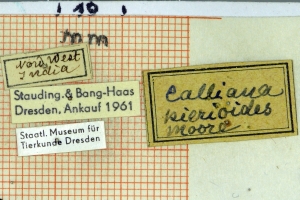 10
mm
Nord West
India
Stauding. & Bang-Haas
Dresden, Ankauf 1961
Staatl. Museum für
Tierkunde Dresden
Calliana
pieridoides
Moore.